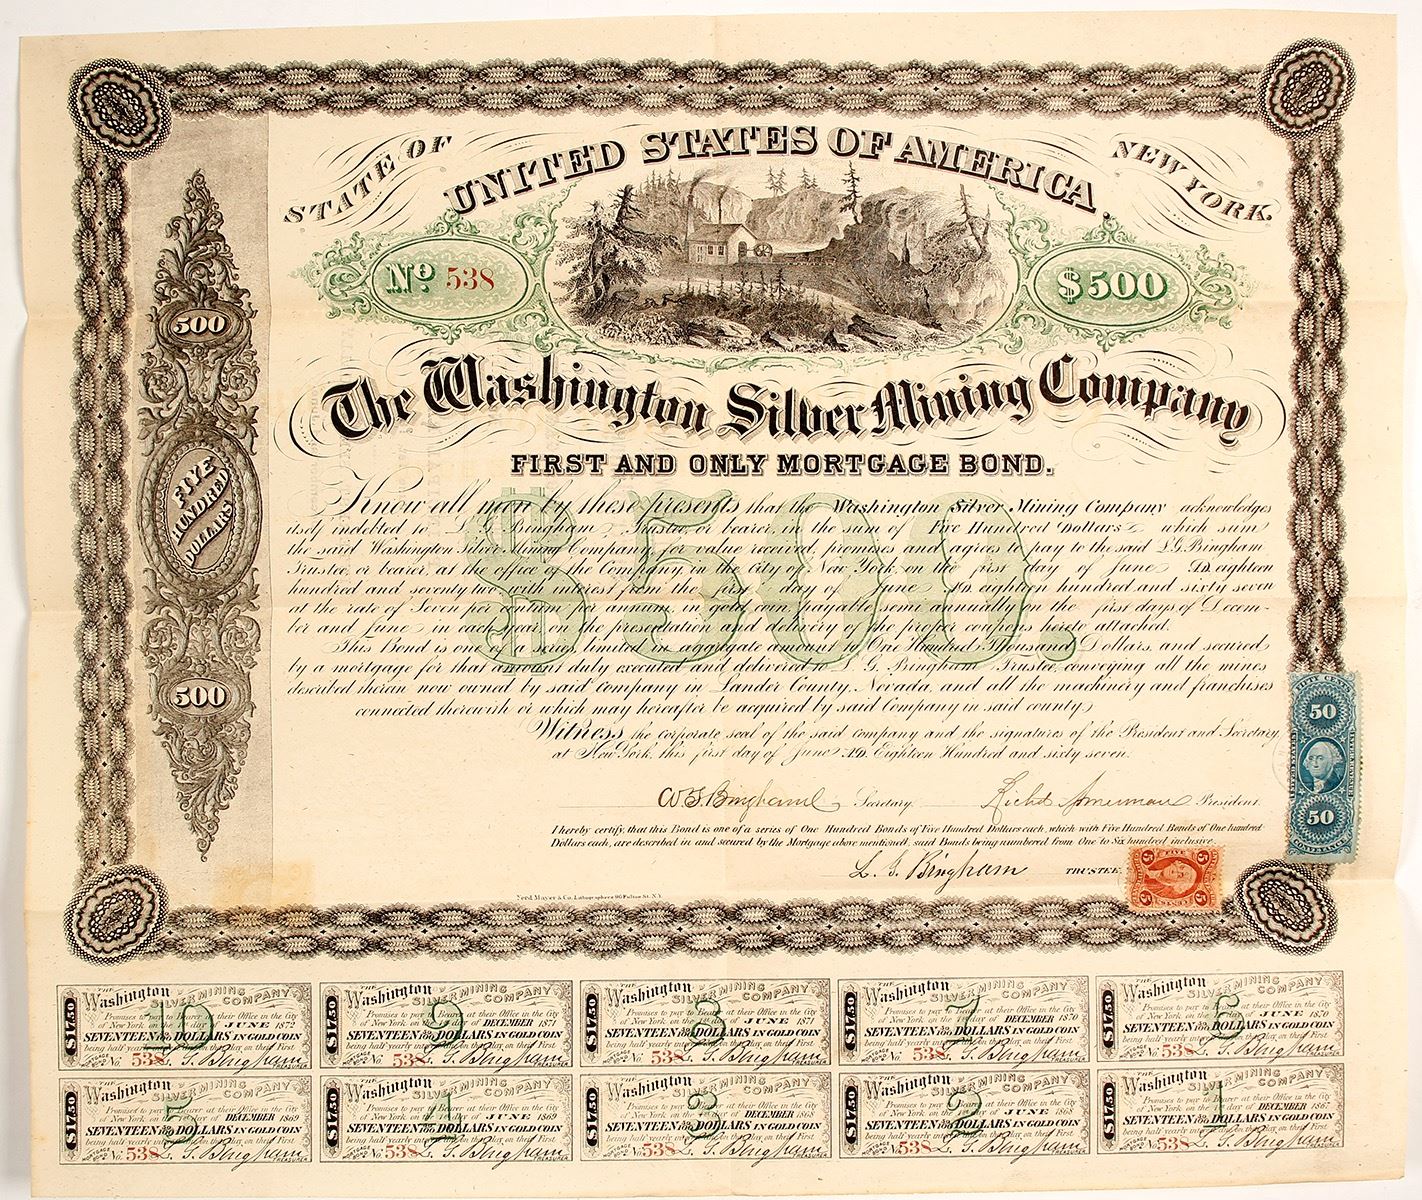 STATE OF
UNITED STATES OF AMERICA.
NEW YORK.
No 538
$500
The Washington Silver Mining Company
FIRST AND ONLY MORTGAGE BOND.
500
FIVE
HUNDRED
DOLLARS
500
$500.
Know all men by these presents that the Washington Silver Mining Company acknowledges
itself indebted to L. G. Bingham, Trustee, or bearer, in the sum of Five Hundred Dollars which sum
the said Washington Silver Mining Company, for value received, promises and agrees to pay to the said L. G. Bingham,
Trustee, or bearer, at the office of the Company, in the City of New York, on the first day of June A.D. eighteen
hundred and seventy two, with interest from the first day of June A.D. eighteen hundred and sixty seven
at the rate of Seven per centum per annum, in gold coin, payable semi annually on the first days of Decem-
ber and June, in each year, on the presentation and delivery of the proper coupons hereto attached.
This Bond is one of a series limited in aggregate amount to One Hundred Thousand Dollars, and secured
by a mortgage for that amount duly executed and delivered to L. G. Bingham Trustee, conveying all the mines
described therein now owned by said Company in Lander County, Nevada, and all the machinery and franchises
connected therewith or which may hereafter be acquired by said Company in said county.
Witness the corporate seal of the said company and the signatures of the President and Secretary,
at New York, this first day of June A.D. Eighteen Hundred and sixty seven.
Bingham Secretary. President.
I hereby certify, that this Bond is one of a series of One Hundred Bonds of Five Hundred Dollars each, which with Five Hundred Bonds of One hundred
Dollars each, are described in and secured by the Mortgage above mentioned, said Bonds being numbered from One to Six hundred inclusive.
L. G. Bingham TRUSTEE
FIFTY CENTS
50
50
CONVEYANCE
FIVE
5
5
CENTS
Ferd. Mayer & Co. Lithographers 96 Fulton St. N.Y.
10
THE Washington SILVER MINING COMPANY
Promises to pay to Bearer at their Office in the City
of New York on the 1st day of JUNE 1872
$17.50 SEVENTEEN 50/100 DOLLARS IN GOLD COIN
being half yearly interest on that day on their First
MORTGAGE BOND No 538 L. G. Bingham TREASURER
9
THE Washington SILVER MINING COMPANY
Promises to pay to Bearer at their Office in the City
of New York on the 1st day of DECEMBER 1871
$17.50 SEVENTEEN 50/100 DOLLARS IN GOLD COIN
being half yearly interest on that day on their First
MORTGAGE BOND No 538 L. G. Bingham TREASURER
8
THE Washington SILVER MINING COMPANY
Promises to pay to Bearer at their Office in the City
of New York on the 1st day of JUNE 1871
$17.50 SEVENTEEN 50/100 DOLLARS IN GOLD COIN
being half yearly interest on that day on their First
MORTGAGE BOND No 538 L. G. Bingham TREASURER
7
THE Washington SILVER MINING COMPANY
Promises to pay to Bearer at their Office in the City
of New York on the 1st day of DECEMBER 1870
$17.50 SEVENTEEN 50/100 DOLLARS IN GOLD COIN
being half yearly interest on that day on their First
MORTGAGE BOND No 538 L. G. Bingham TREASURER
6
THE Washington SILVER MINING COMPANY
Promises to pay to Bearer at their Office in the City
of New York on the 1st day of JUNE 1870
$17.50 SEVENTEEN 50/100 DOLLARS IN GOLD COIN
being half yearly interest on that day on their First
MORTGAGE BOND No 538 L. G. Bingham TREASURER
5
THE Washington SILVER MINING COMPANY
Promises to pay to Bearer at their Office in the City
of New York on the 1st day of DECEMBER 1869
$17.50 SEVENTEEN 50/100 DOLLARS IN GOLD COIN
being half yearly interest on that day on their First
MORTGAGE BOND No 538 L. G. Bingham TREASURER
4
THE Washington SILVER MINING COMPANY
Promises to pay to Bearer at their Office in the City
of New York on the 1st day of JUNE 1869
$17.50 SEVENTEEN 50/100 DOLLARS IN GOLD COIN
being half yearly interest on that day on their First
MORTGAGE BOND No 538 L. G. Bingham TREASURER
3
THE Washington SILVER MINING COMPANY
Promises to pay to Bearer at their Office in the City
of New York on the 1st day of DECEMBER 1868
$17.50 SEVENTEEN 50/100 DOLLARS IN GOLD COIN
being half yearly interest on that day on their First
MORTGAGE BOND No 538 L. G. Bingham TREASURER
2
THE Washington SILVER MINING COMPANY
Promises to pay to Bearer at their Office in the City
of New York on the 1st day of JUNE 1868
$17.50 SEVENTEEN 50/100 DOLLARS IN GOLD COIN
being half yearly interest on that day on their First
MORTGAGE BOND No 538 L. G. Bingham TREASURER
1
THE Washington SILVER MINING COMPANY
Promises to pay to Bearer at their Office in the City
of New York on the 1st day of DECEMBER 1867
$17.50 SEVENTEEN 50/100 DOLLARS IN GOLD COIN
being half yearly interest on that day on their First
MORTGAGE BOND No 538 L. G. Bingham TREASURER